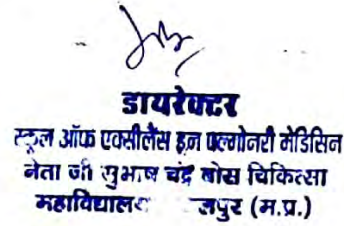 डायरेक्टर
स्कूल ऑफ एक्सीलेंस इन पल्मोनरी मेडिसिन
नेता जी सुभाष चंद्र बोस चिकित्सा
महाविद्यालय (म.प्र.)